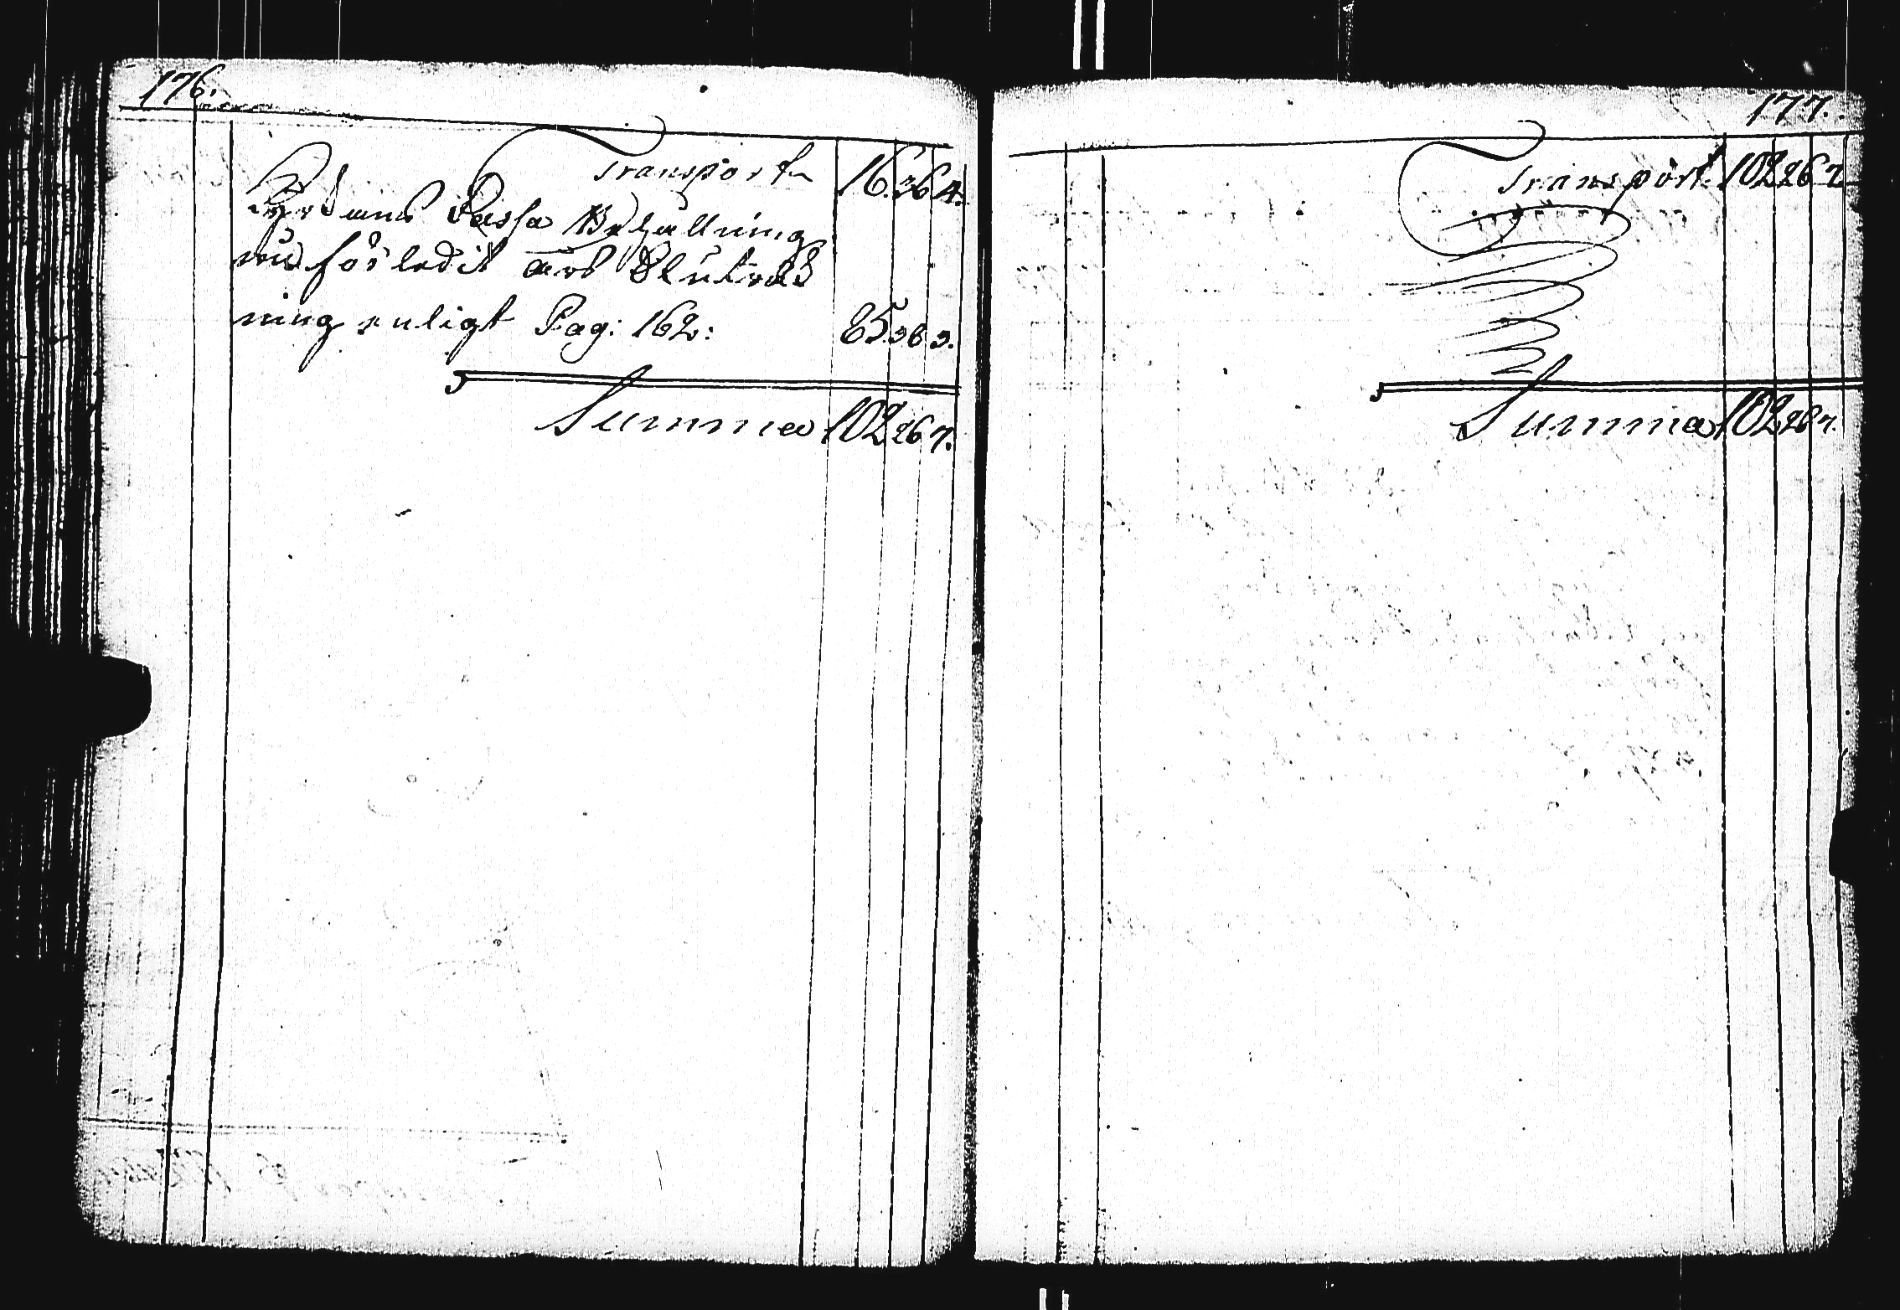 176.
Transport 16. 36 4.
Kyrkans Cassa Behållning
vid förledit års Sluträk
ning enligt Pag: 162: 85. 38 3.
Summa 102 26 7.
177.
Transport. 102 26 7
Summa 102 26 7.